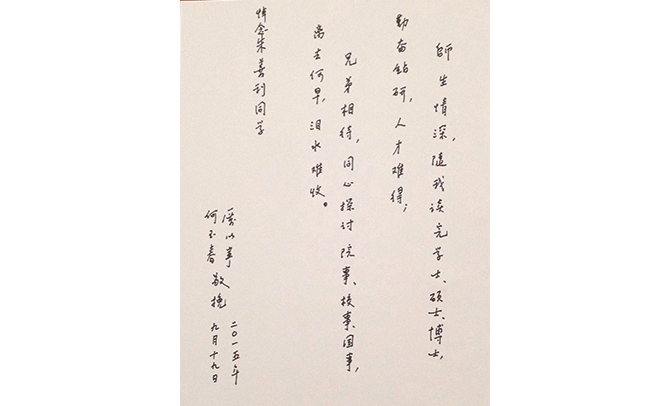 師生情深，隨我读完学士、硕士、博士，
勤奋钻研，人才难得；
兄弟相待，同心探讨院事、校事、国事，
离去何早，泪水难收。
悼念朱善利同学
厉以宁
何玉春 敬挽
二〇一五年
九月十九日